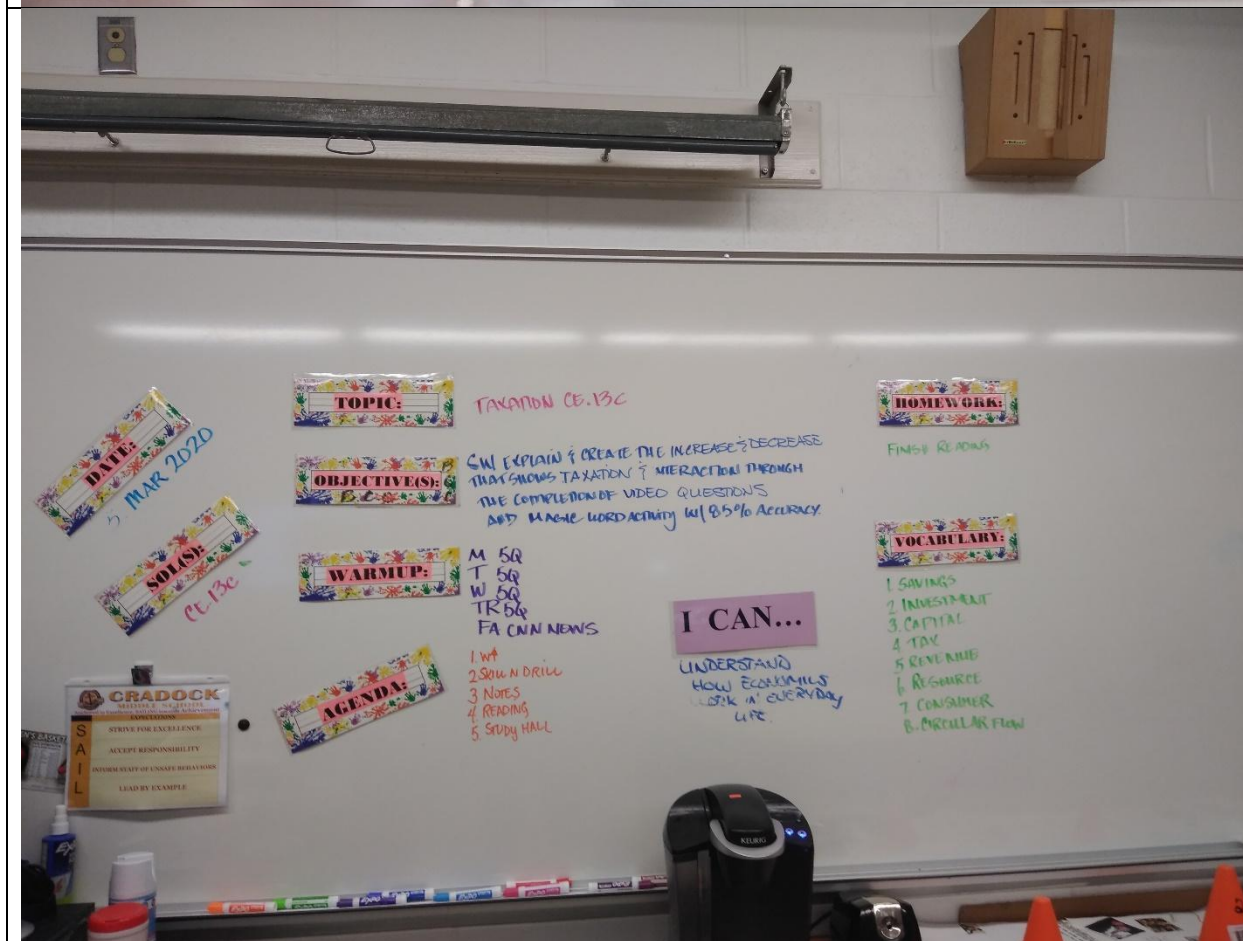 DATE:
5 MAR 2020
SOL(S):
CE.13C
TOPIC:
TAXATION CE.13C
OBJECTIVE(S):
B C
SW EXPLAIN & CREATE THE INCREASE & DECREASE
THAT SHOWS TAXATION & INTERACTION THROUGH
THE COMPLETION OF VIDEO QUESTIONS
AND MAGIC WORD ACTIVITY W/ 85% ACCURACY.
WARMUP:
M 5Q
T 5Q
W 5Q
TR 5Q
FA CNN NEWS
AGENDA:
1. W↑
2 SKILL N DRILL
3 NOTES
4. READING
5. STUDY HALL
I CAN...
UNDERSTAND
HOW ECONOMICS
WORK IN EVERYDAY
LIFE.
HOMEWORK:
FINISH READING
VOCABULARY:
1 SAVINGS
2 INVESTMENT
3. CAPITAL
4 TAX
5 REVENUE
6 RESOURCE
7. CONSUMER
8. CIRCULAR FLOW
CRADOCK
MIDDLE SCHOOL
EXPECTATIONS
SAIL
STRIVE FOR EXCELLENCE
ACCEPT RESPONSIBILITY
INFORM STAFF OF UNSAFE BEHAVIORS
LEAD BY EXAMPLE
KEURIG